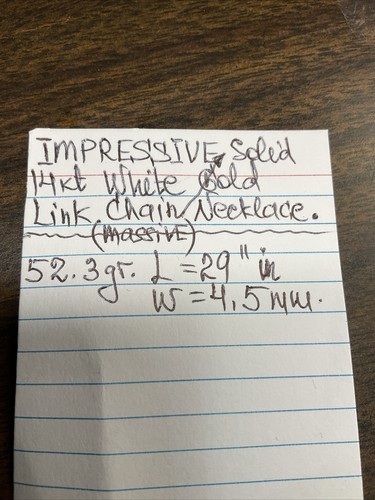 IMPRESSIVE Solid
14kt White Gold
Link Chain Necklace.
(massive)
52.3gr. L = 29" in
W = 4,5mm.